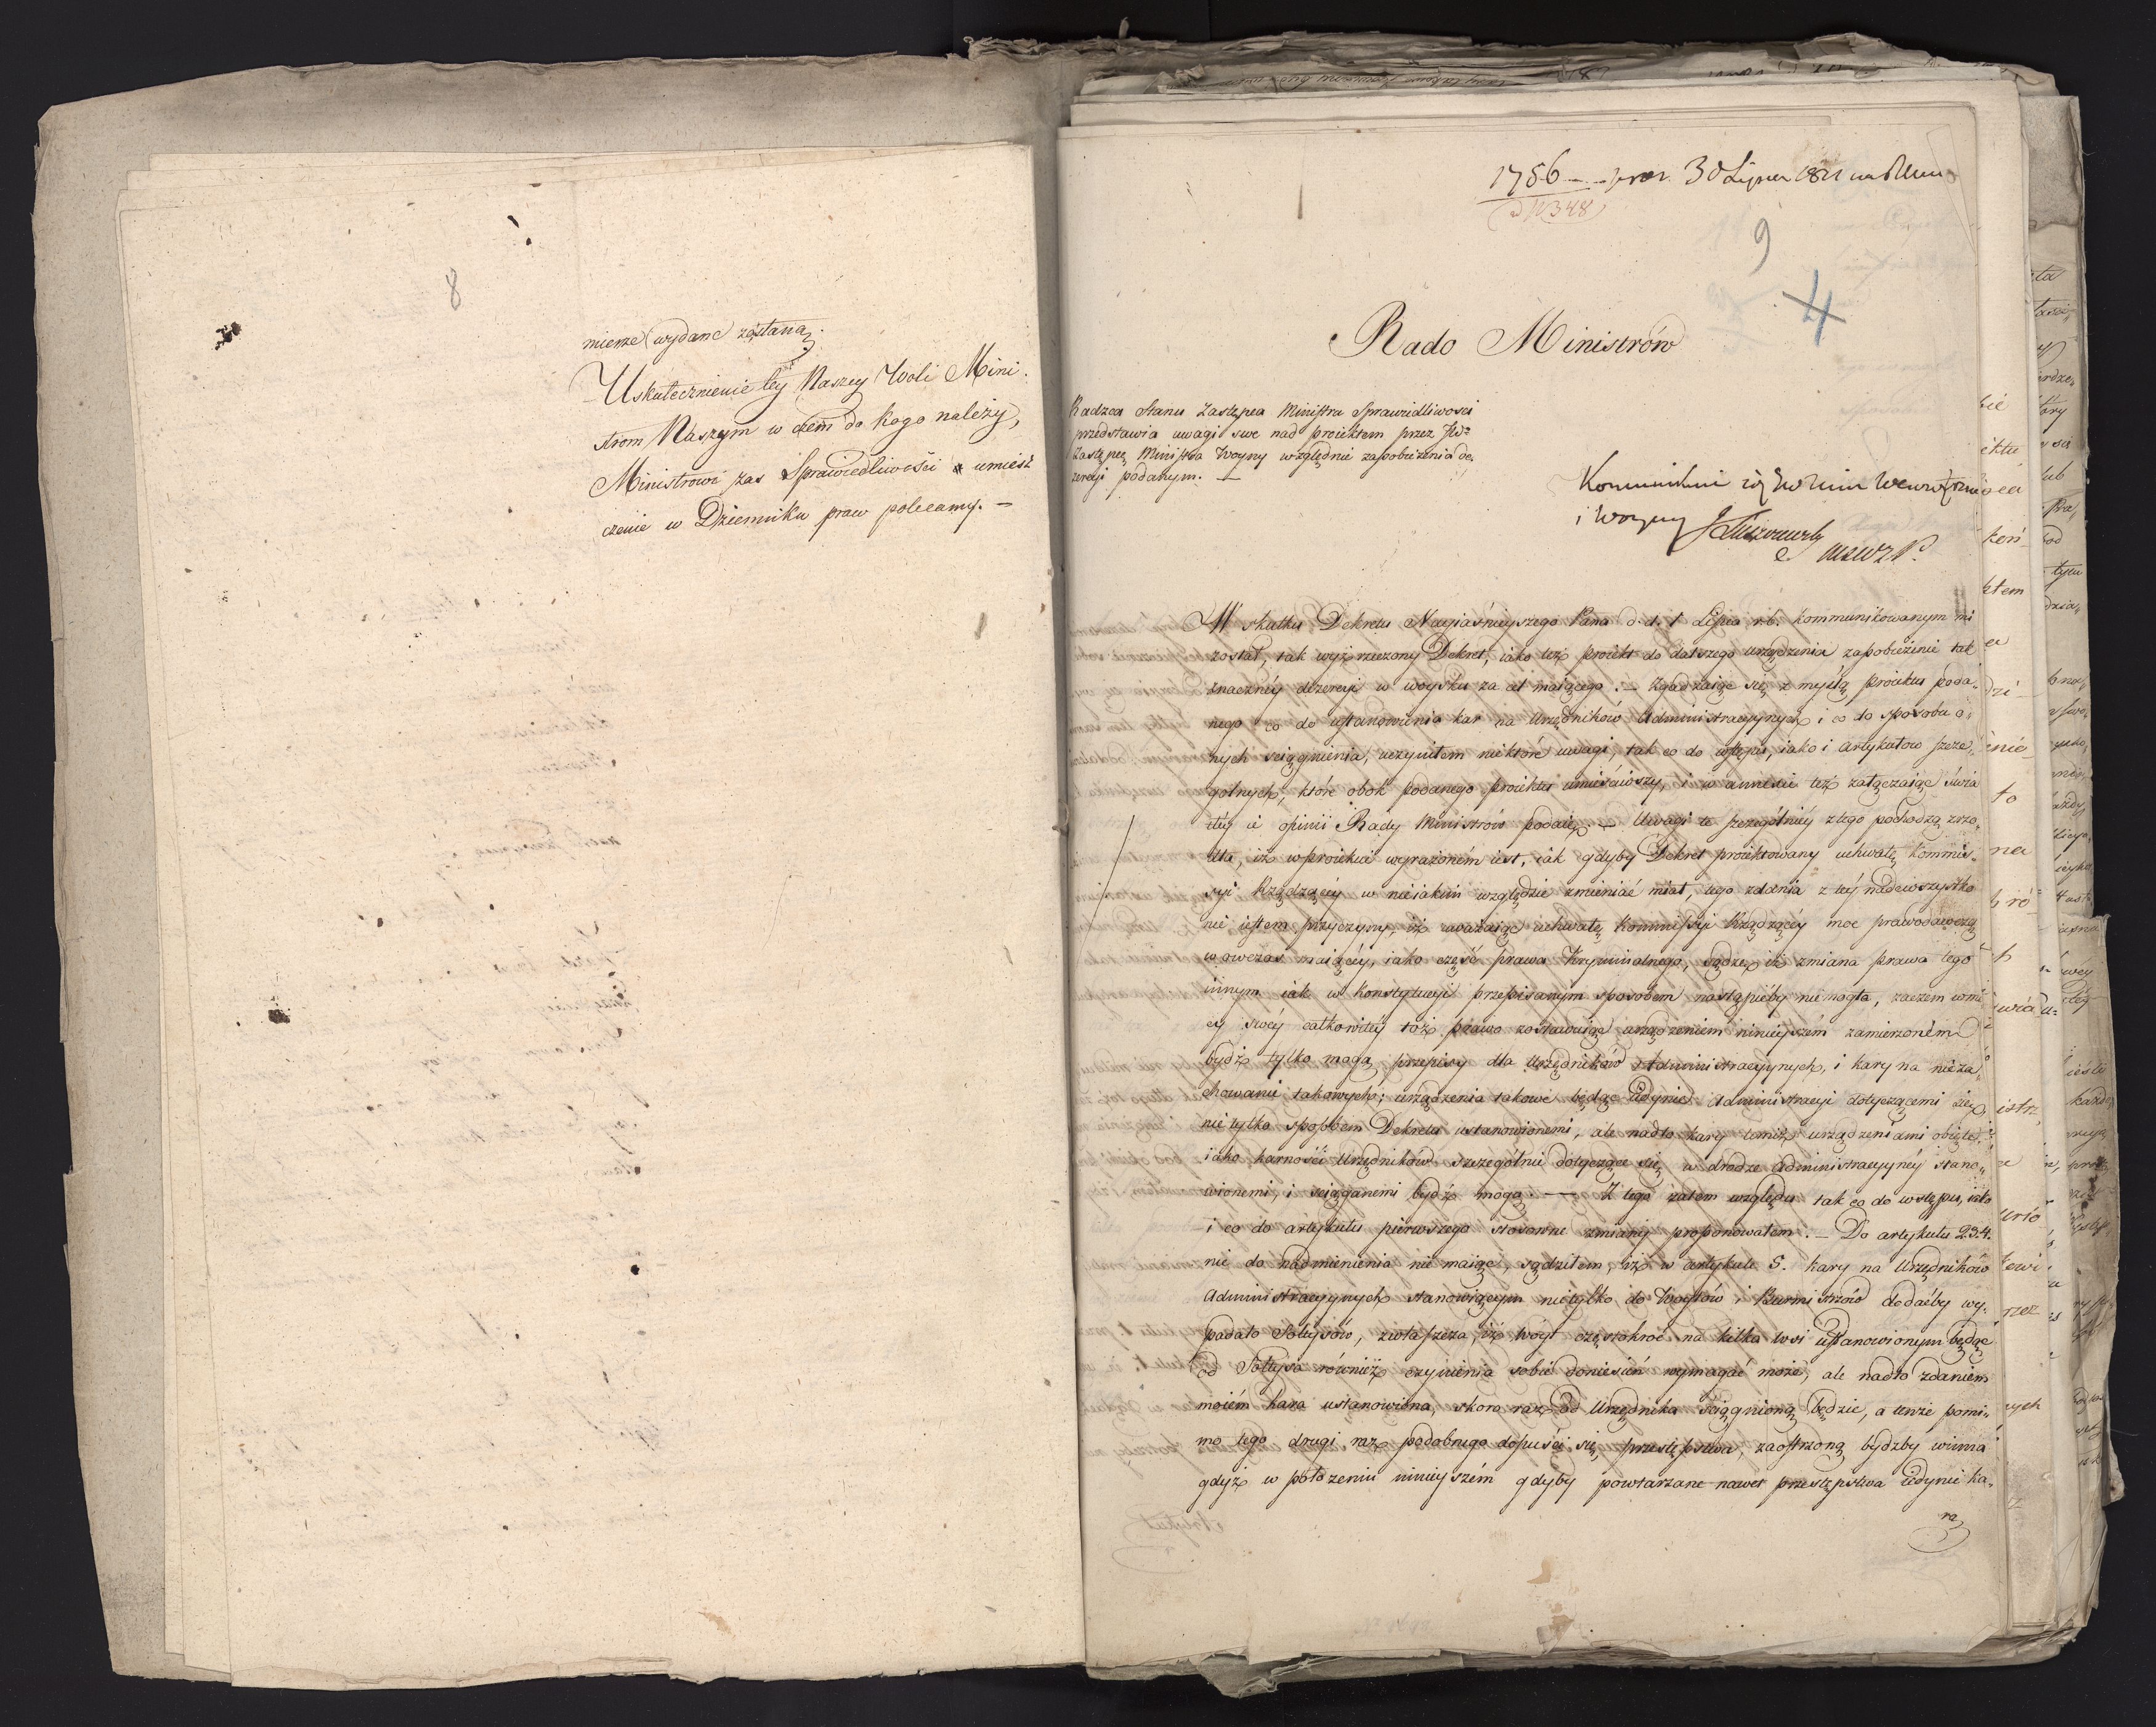 8
mierze wydane zostaną.
Uskutecznienie tey Naszey Woli Mini-
strom Naszym w czem do kogo należy,
Ministrowi zas Sprawiedliwości umiesz
czenie w Dzienniku praw polecamy. —
1786 — 30 Lipca 1811
9
4
Rado Ministrów
Radzca Stanu Zastępca Ministra Sprawiedliwosci
przedstawia uwagi swe nad proiektem przez JW
Zastępcę Ministra Woyny względnie zapobieżenia de-
zercyi podanym. —
i Woyny
W skutku Dekretu Nayiaśnieyszego Pana d. d. 1 Lipca r. b. kommunikowanym mi
został, tak wyż rzeczony Dekret, iako też proiekt do dalszego urządzenia zapobieżenie tak
znaczney dezercyi w woysku za cel maiącego. — Zgadzaiąc się z myślą proiektu poda-
nego co do ustanowienia kar na Urzędników Administracyynych i co do sposobu o-
nych sciągnienia, uczyniłem niektóre uwagi, tak co do wstępu, iako i artykułow szcze-
golnych, które obok podanego proiektu umieściwszy, i w annexie też załączaiąc świa
tłey opinii Rady Ministrów podaię. — Uwagi te szczegolniey z tego pochodzą zrzo-
dła, iż w proiekcie wyrażonem iest, iak gdyby Dekret proiektowany uchwałę Kommis-
syi Rządzącey w nieiakim względzie zmieniać miał, tego zdania z tey nadewszystko
nie iestem przyczyny, iż uważaiąc uchwałę Kommissyi Rządzącey moc prawodawczą
wowczas maiącey, iako część prawa Kryminalnego, sądzę iż zmiana prawa tego
innym iak w Konstytucyi przepisanym sposobem nastąpićby nie mogła, zaczem w mo
cy swey całkowitey toż prawo zostawuiąc urządzeniem ninieyszém zamierzoném
bydź tylko mogą przepisy dla Urzędników Administracyynych, i kary na nieza-
chowanie takowych; urządzenia takowe będąc iedynie Administracyi dotyczącemi się,
nietylko sposobem Dekretu ustanowionemi, ale nadto kary temiż urządzeniami obięte,
iako karności Urzędników szczególnie dotyczące się, w drodze Administracyyney stano-
wionemi, i sciąganemi bydź mogą. — Z tego zatem względu tak co do wstępu, iako
i co do artykułu pierwszego stosowne zmiany proponowałem. — Do artykułu 2.3.4.
nic do nadmienienia nie maiąc, sądziłem, iż w artykule 5. kary na Urzędników
Administracyynych stanowiącym nietylko do Woytów i Burmistrzów dodaćby wy-
padało Sołtysów, zwłaszcza, iż Wóyt częstokroć na kilka wsi ustanowionym będąc
od Sołtysa również czynienia sobie doniesień wymagać może, ale nadto zdaniem
moiém kara ustanowiona, skoro raz od Urzędnika sciągnioną będzie, a tenże pomi-
mo tego drugi raz podobnego dopuści się przestępstwa, zaostrzoną bydźby winna
gdyż w położeniu ninieyszém gdyby powtarzane nawet przestępstwa iedynie ka-
rą